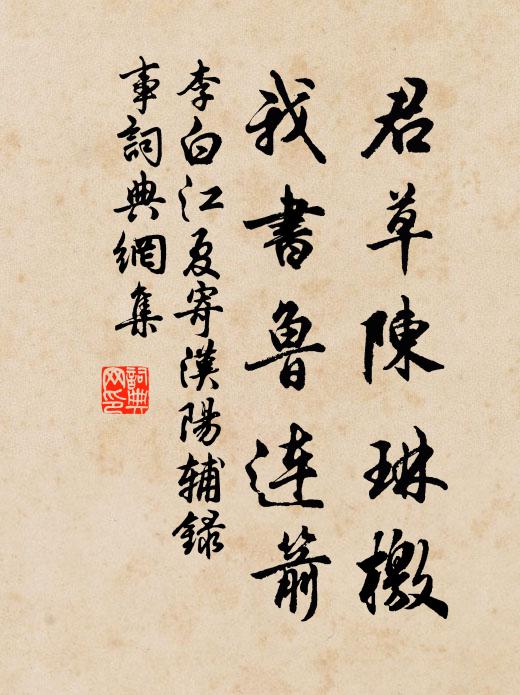 君草陳琳檄
我書魯連箭
李白江夏寄漢陽輔錄
事詞典網集
詞典網印